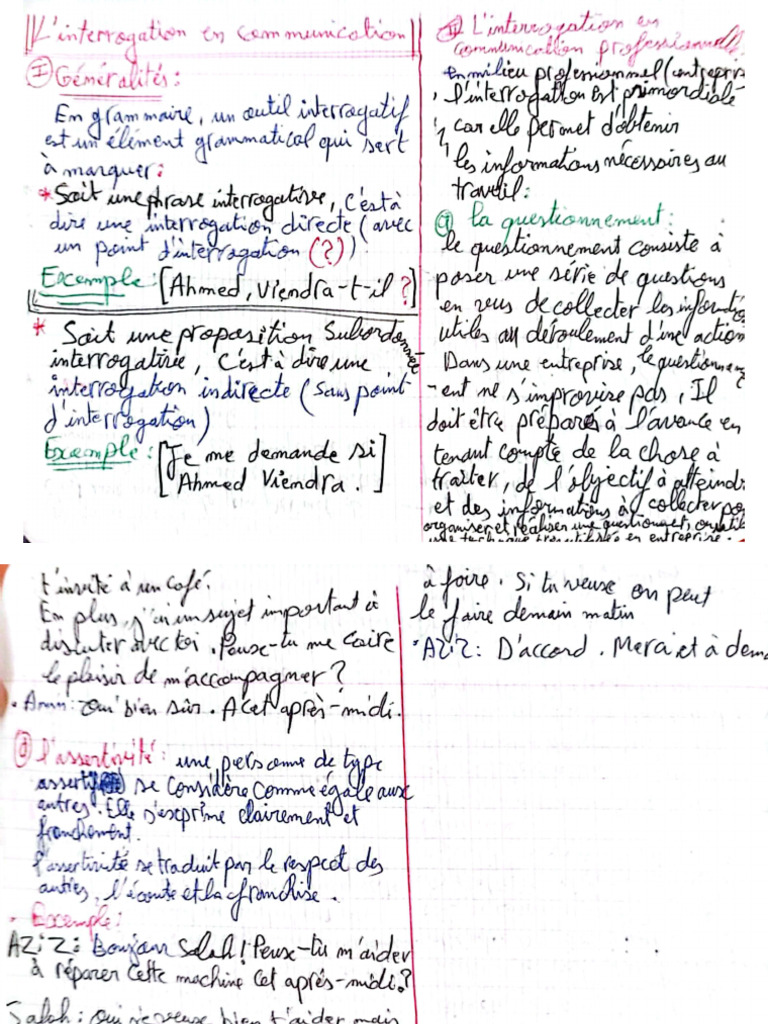 L'interrogation en communication
I Généralités :
En grammaire, un outil interrogatif
est un élément grammatical qui sert
à marquer :
* Soit une phrase interrogative, c'est à
dire une interrogation directe (avec
un point d'interrogation (?))
Excemple : [Ahmed, Viendra-t-il ?]
* Soit une proposition Subordonnée
interrogative, c'est à dire une
interrogation indirecte (sans point
d'interrogation)
Excemple : [Je me demande si
Ahmed Viendra.]
II L'interrogation en
communication professionnelle
en milieu professionnel (entrepris
, l'interrogation est primordiale
, car elle permet d'obtenir
les informations nécessaires au
travail :
a la questionnement :
le questionnement consiste à
poser une série de questions
en veus de collecter les
utiles au déroulement d'une action
Dans une entreprise, le questionnem
-ent ne s'improvise pas, Il
doit être préparé à l'avance en
tendant compte de la chose à
traiter, de l'objectif à atteindre
et des informations à collecter
organiser et réaliser une
une technique en entreprise.
t'invite à un café.
En plus, j'ai un sujet important à
discuter avec toi. Peuse-tu me faire
le plaisir de m'accompagner ?
• Amin : Oui bien sûr. A Cet après-midi.
d l'assertivité : une personne de type
assertif se considère comme égale aux
autres. Elle s'exprime clairement et
franchement.
l'assertivité se traduit par le respect des
autres, l'écoute et la franchise.
• Excemple :
AZiZ : Boujour Salah ! Peuse-tu m'aider
à réparer Cette machine Cet après-midi ?
Salah : oui je veuse bien t'aider mais
à faire. Si tu veuse on peut
le faire demain matin
• AZiZ : D'accord. Merci et à dema